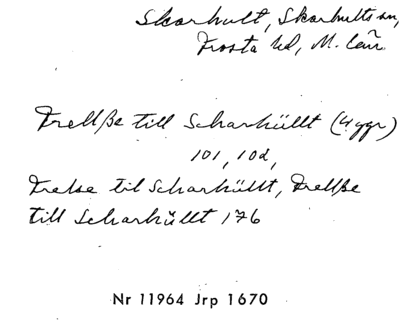 Skarhult, Skarhults sn,
Frosta hd, M. län
Frelße till Scharhüllt (4 ggr)
101, 102,
Frelse til Scharhüllt, Frelße
till Scharhüllt 176
Nr 11964 Jrp 1670